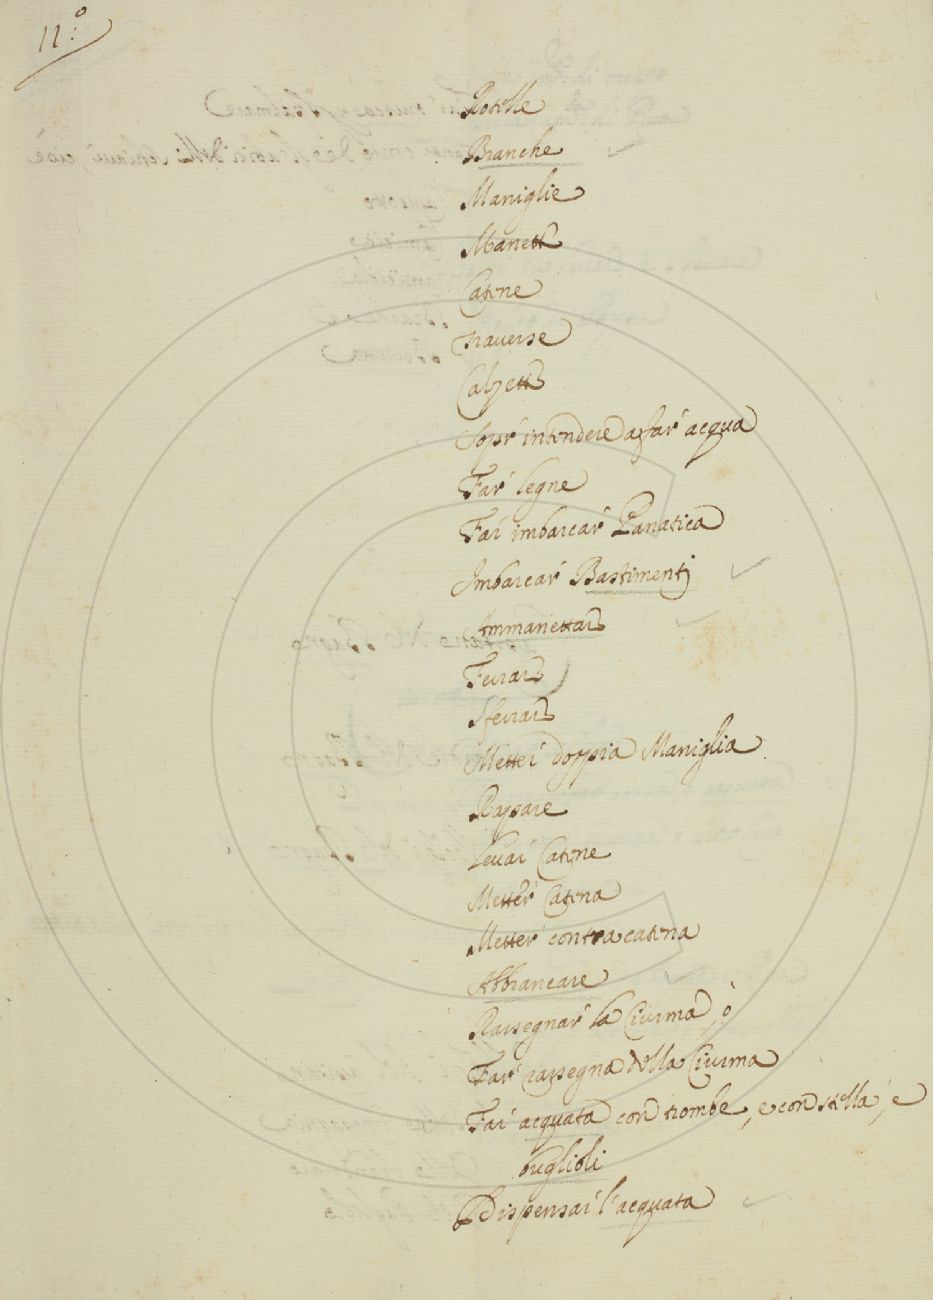 11.º
Rotelle
Branche
Maniglie
Manette
Catene
Trauerse
Calzette
Sopr' intendere a far' acqua
Far' legne
Far imbarcar' Panatica
Imbarcar' Bastimentj
Ammanettare
Ferrare
Sferrare
Metter doppia Maniglia
Rapare
Leuar Catene
Metter' Catena
Metter' contracatena
Abbrancare
Rassegnar' la Ciurma, ò
Far' rassegna della Ciurma
Far acquata con trombe, e con stella, e
buglioli
Dispensar l'acquata